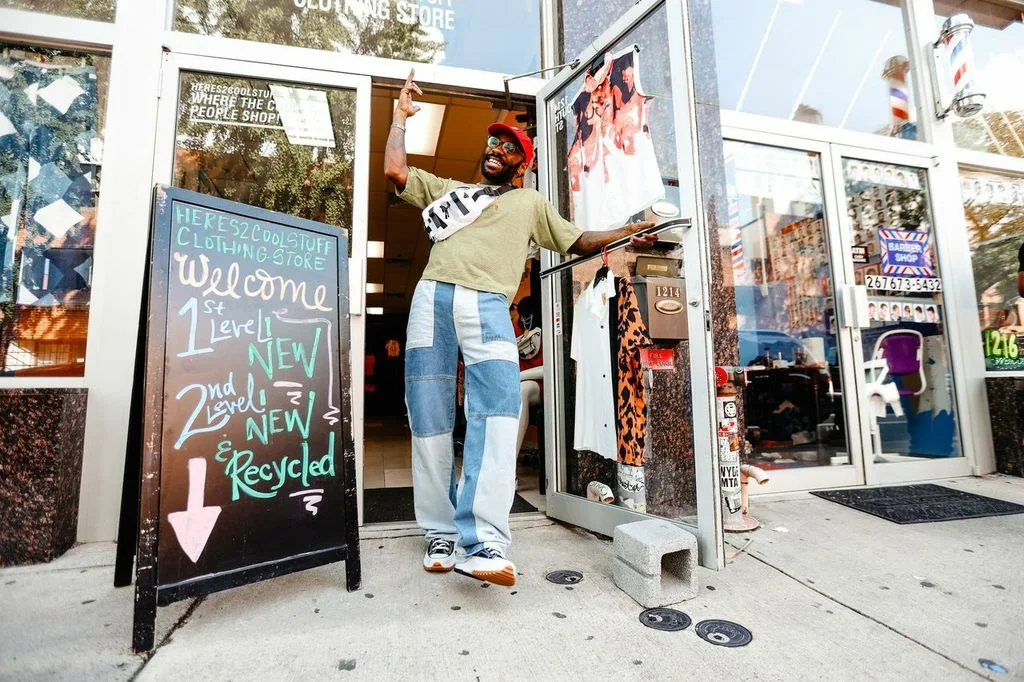 CLOTHING STORE
HERES2COOLSTUFF
WHERE THE C
PEOPLE SHOP!
HERES2COOLSTUFF
CLOTHING-STORE
Welcome
1st Level!
NEW
2nd Level!
NEW
& Recycled
1214
FIRE
BARBER
SHOP
267 673-5432
1216
NYC
MTA